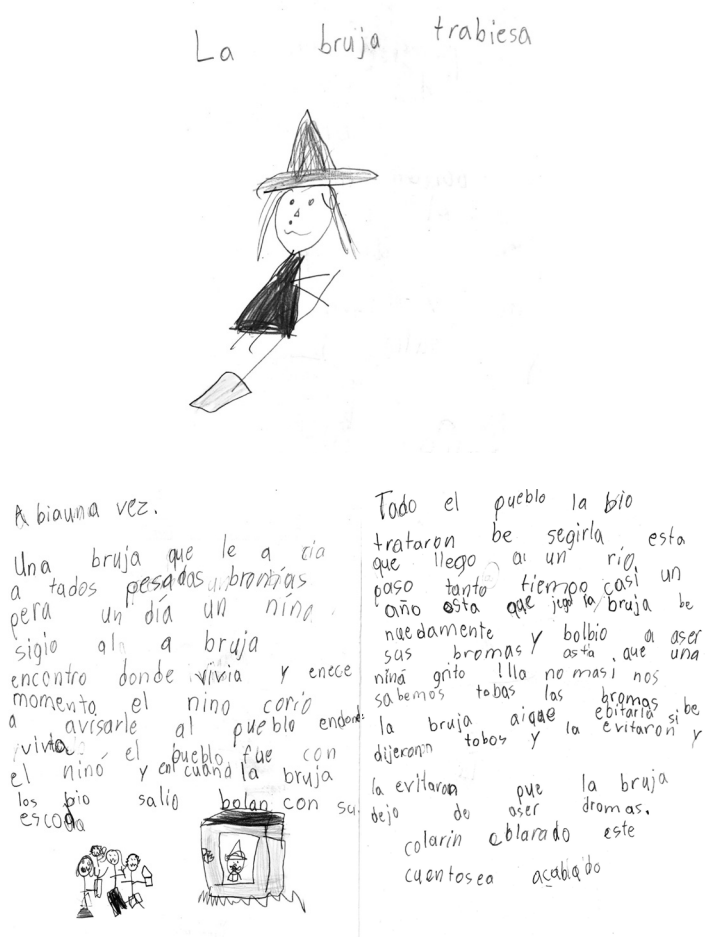 La bruja trabiesa
A biauna vez.
Una bruja que le a cia
a tados pesadas bromas
pera un día un nino
sigio al a bruja
encontro donde vivia y enece
momento el nino corio
a avisarle al pueblo endonde
vivia el pueblo fue con
el ninó y en cuando la bruja
los bio salio bolan con su
escoda
Todo el pueblo la bio
trataron be segirla esta
que llego a un río
paso tanto tiempo casi un
año osta que jugo la bruja be
nuedamente y bolbio a aser
sus bromas asta que una
nina grito lla no mas i nos
sabemos tobas las bromas be
la bruja aique ebitarla si
dijeron tobos y la evitaron y
la evitaron pue la bruja
dejo de aser dromas.
colarin coblarado este
cuentosea acabado